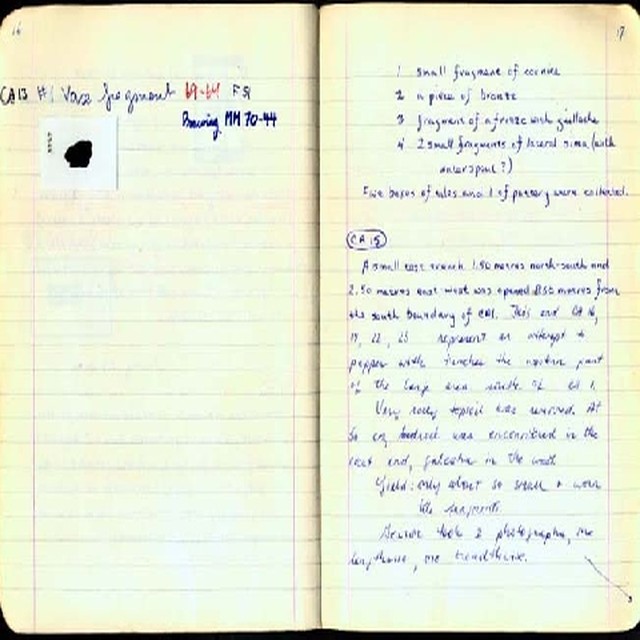 16
CA13 #1 Vase fragment 69-64 F59
Drawing MM 70-44
17
1 small fragment of cornice
2 a piece of bronze
3 fragment of a frieze with guilloche
4 2 small fragments of lateral sima (with
waterspout?)
Five boxes of tiles and 1 of pottery were collected.
CA 15
A small test trench 1.50 metres north-south and
2.50 metres east-west was opened metres from
the south boundary of CA1. This and CA 16,
19, 22, 23 represent an attempt to
pepper with trenches the northern part
of the large area south of CA 1.
Very rocky topsoil was removed. At
50 cm bedrock was encountered in the
east end, galestra in the west
Yield: only about 50 small + worn
tile fragments.
took 2 photographs, one
lengthwise, one breadthwise.